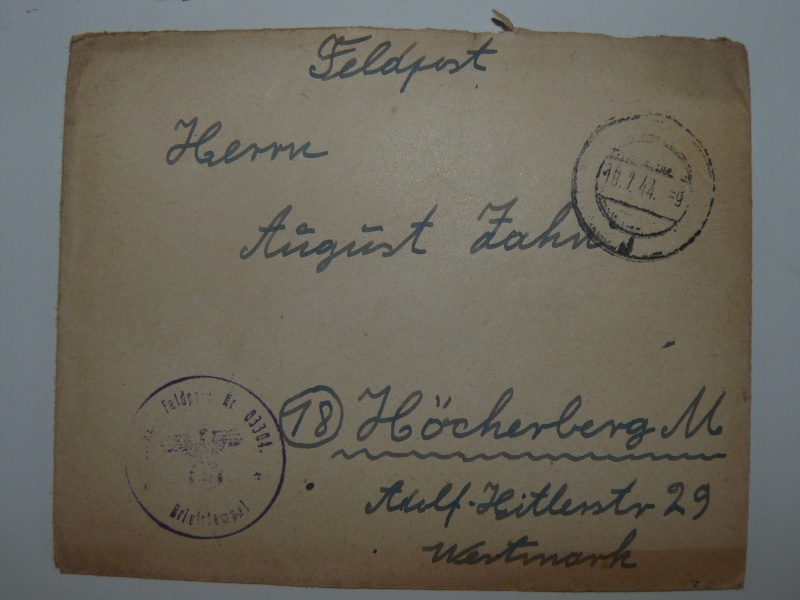 Feldpost
Herrn
August Zahn
16.1.44.
(18) Höcherberg M
Adolf-Hitlerstr 29
Westmark
Feldpost Nr 03304
Briefstempel